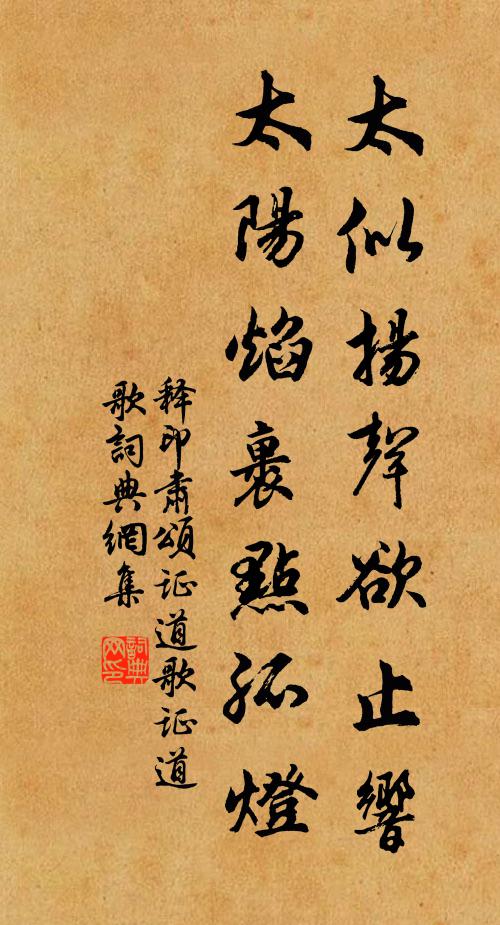 太似揚聲欲止響
太陽焰裏點孤燈
释印肃頌证道歌证道
歌詞典網集
詞典网印